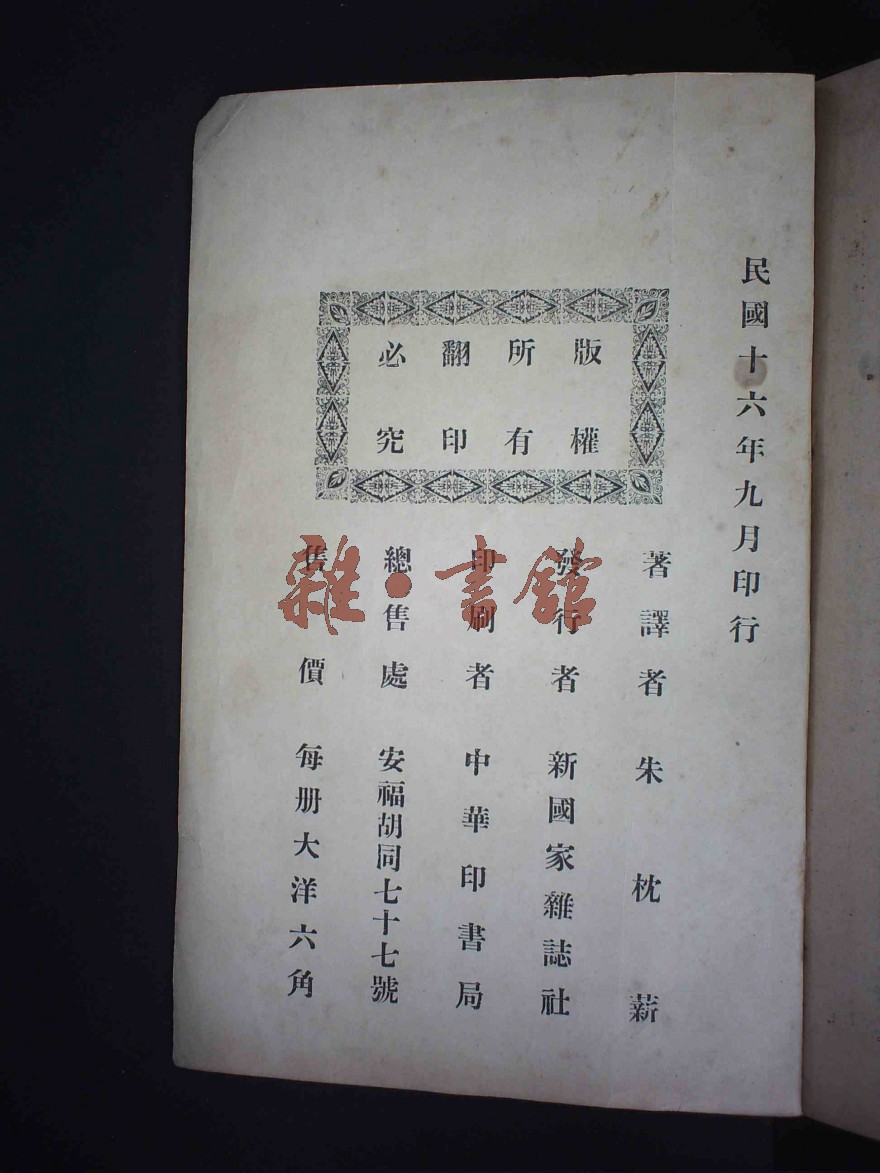 民國十六年九月印行
版權
所有
翻印
必究
著譯者 朱枕薪
發行者 新國家雜誌社
印刷者 中華印書局
總售處 安福胡同七十七號
售價 每册大洋六角
雜·書館